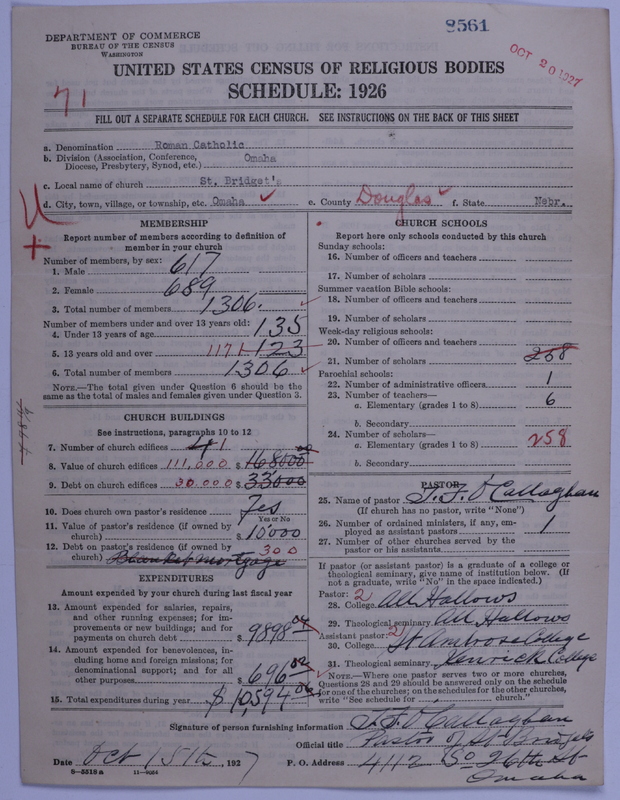 8561
OCT 20 1927
DEPARTMENT OF COMMERCE
BUREAU OF THE CENSUS
WASHINGTON
UNITED STATES CENSUS OF RELIGIOUS BODIES
SCHEDULE: 1926
71
FILL OUT A SEPARATE SCHEDULE FOR EACH CHURCH. SEE INSTRUCTIONS ON THE BACK OF THIS SHEET
a. Denomination Roman Catholic
b. Division (Association, Conference, Diocese, Presbytery, Synod, etc.) Omaha
c. Local name of church St. Bridget's
d. City, town, village, or township, etc. Omaha e. County Douglas f. State Nebr.
MEMBERSHIP
Report number of members according to definition of member in your church
Number of members, by sex:
1. Male 617
2. Female 689
3. Total number of members 1306
Number of members under and over 13 years old:
4. Under 13 years of age 135
5. 13 years old and over 1171 123
6. Total number of members 1306
NOTE.—The total given under Question 6 should be the same as the total of males and females given under Question 3.
CHURCH BUILDINGS
See instructions, paragraphs 10 to 12
7. Number of church edifices 4 1
8. Value of church edifices 111,000 $ 168000 00
9. Debt on church edifices 30000 $ 33000
10. Does church own pastor's residence Yes
Yes or No
11. Value of pastor's residence (if owned by church) $ 10000
12. Debt on pastor's residence (if owned by church) 300 Blanket Mortgage
EXPENDITURES
Amount expended by your church during last fiscal year
13. Amount expended for salaries, repairs, and other running expenses; for improvements or new buildings; and for payments on church debt $ 9898 04
14. Amount expended for benevolences, including home and foreign missions; for denominational support; and for all other purposes $ 696 02
15. Total expenditures during year $ 10,594 06
CHURCH SCHOOLS
Report here only schools conducted by this church
Sunday schools:
16. Number of officers and teachers
17. Number of scholars
Summer vacation Bible schools:
18. Number of officers and teachers
19. Number of scholars
Week-day religious schools:
20. Number of officers and teachers
21. Number of scholars 258
Parochial schools:
22. Number of administrative officers 1
23. Number of teachers—
a. Elementary (grades 1 to 8) 6
b. Secondary
24. Number of scholars—
a. Elementary (grades 1 to 8) 258
b. Secondary
PASTOR
25. Name of pastor T. F. O'Callaghan
(If church has no pastor, write "None")
26. Number of ordained ministers, if any, employed as assistant pastors 1
27. Number of other churches served by the pastor or his assistants
If pastor (or assistant pastor) is a graduate of a college or theological seminary, give name of institution below. (If not a graduate, write "No" in the space indicated.)
Pastor: 2
28. College All Hallows
29. Theological seminary All Hallows
Assistant pastor: 2
30. College St Ambrose College
31. Theological seminary Kenrick College
NOTE.—Where one pastor serves two or more churches, Questions 28 and 29 should be answered only on the schedule for one of the churches; on the schedules for the other churches, write "See schedule for church."
Signature of person furnishing information T. F. O'Callaghan
Official title Pastor of St Bridgets
Date Oct 15th, 1927 P. O. Address 4112 So 26th St
Omaha
8-5518 a 11-9055